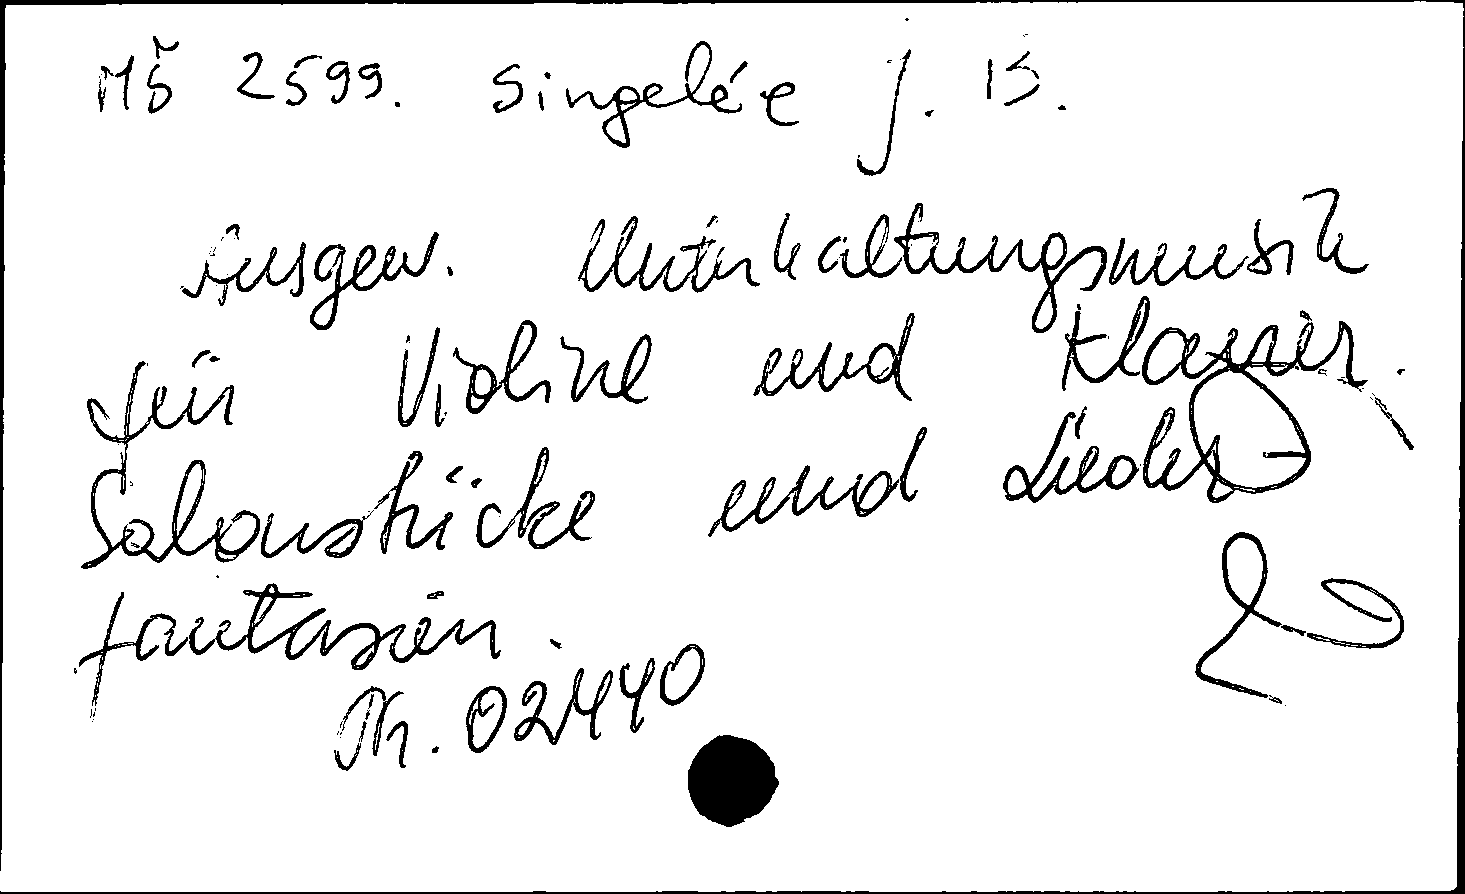 Mš 2599. Singelée J. B.
Ausgew. Unterhaltungsmusik
für Violine und Klavier.
Salonstücke und Lieder-
fantasien.
Nr. 02440